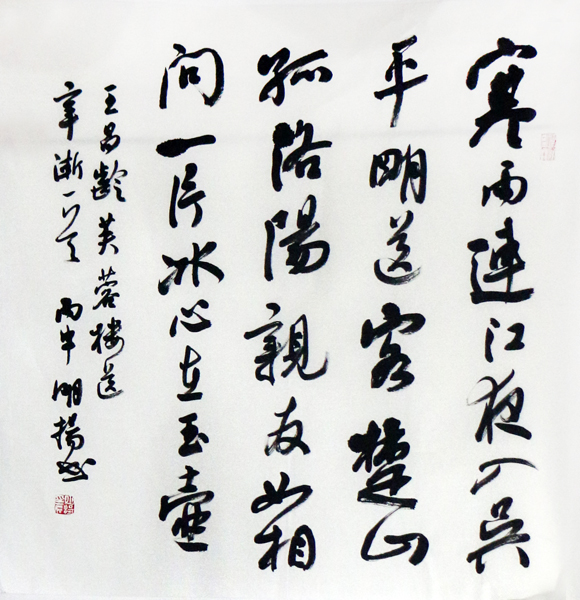 寒雨連江夜入吳
平明送客楚山
孤洛陽親友如相
問一片冰心在玉壺
王昌齡芙蓉樓送
辛漸一首 丙午明揚書